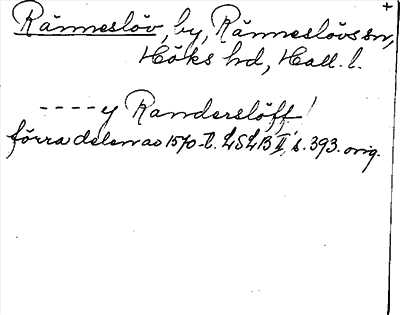 Ränneslöv, by, Ränneslövs sn,
Höks hd, Hall. l.
---- y Randerslöff!
förra delen av 1570-t. LSLB II, s. 393. orig.